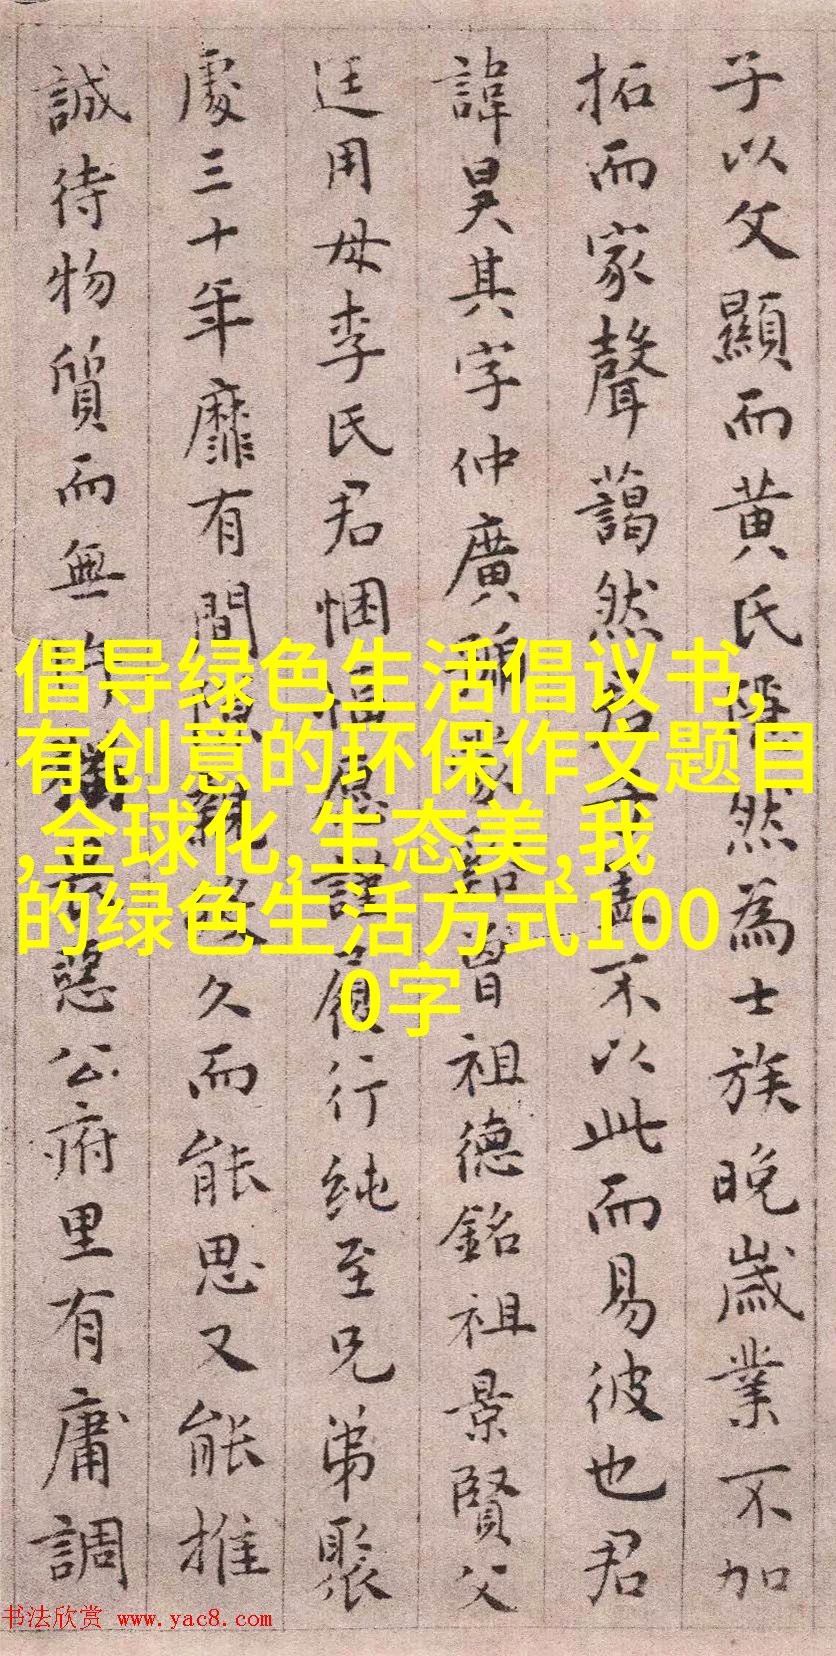 子以文顯而黄氏隱然為士族晚歲業不加
拓而家聲藹然君子蓋不以此而易彼也君
諱昊其字仲廣號曾祖德銘祖景賢父
廷用母李氏君悃愊愿謹履行纯至兄弟聚
處三十年靡有間隙親終久而能思又能推
誠待物質而無公府里有庸調
倡导绿色生活倡议书,
有创意的环保作文题目
,全球化,生态美,我
的绿色生活方式100
0字
书法欣赏 www.yac8.com